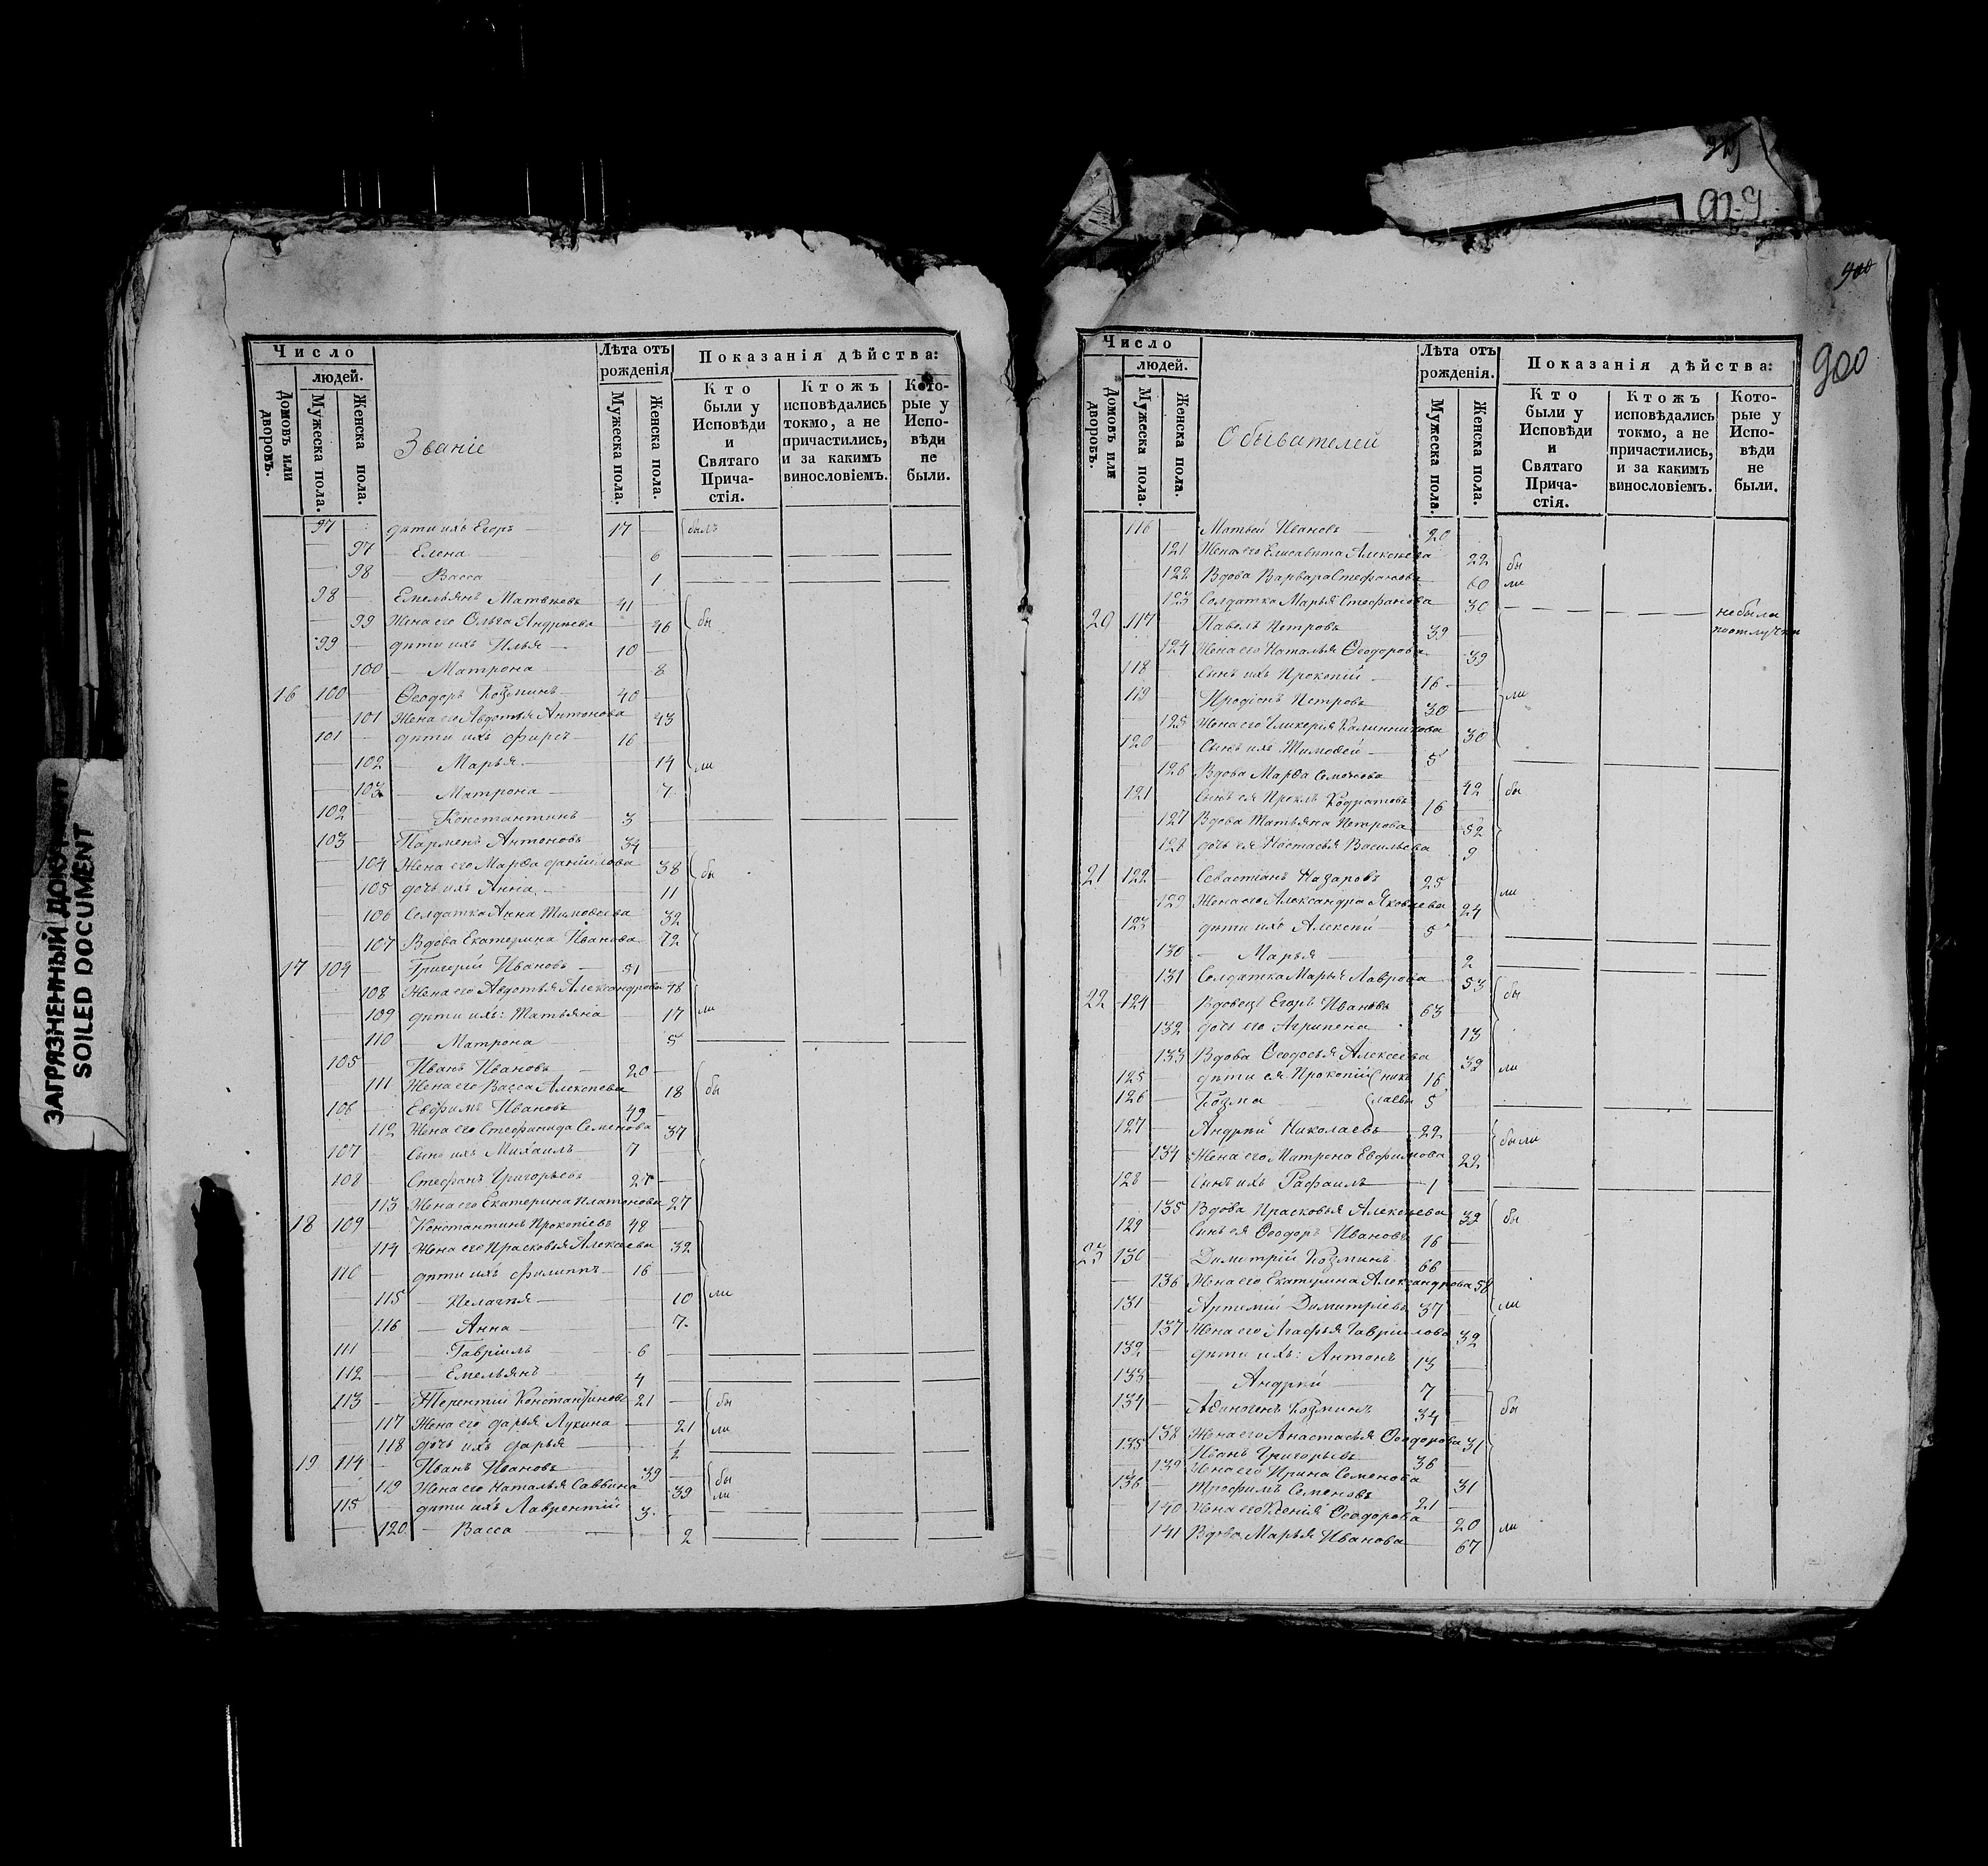 929
900
900
ЗАГРЯЗНЕННЫЙ ДОКУМЕНТ
SOILED DOCUMENT
Число
людей.
Домовъ или дворовъ.
Мужеска пола.
Женска пола.
Званіе
Лѣта отъ рожденія
Мужеска пола.
Женска пола.
Показанія дѣйства:
Кто были у Исповѣди и Святаго Прича-стія.
Ктожъ исповѣдались токмо, а не причастились, и за какимъ винословіемъ.
Кото-рые у Испо-вѣди не были.
97 — дѣти ихъ Егоръ — 17 — былъ
— 97 — Елена — 6
— 98 — Васса — 1
98 — Емельянъ Матвѣевъ 41 —
— 99 Жена его Ольга Андреева — 46 бы
99 — дѣти ихъ Илья — 10 —
— 100 — Матрона — 8
16 100 — Ѳеодоръ Козминъ — 40 —
— 101 Жена его Авдотья Антонова 43
101 — дѣти ихъ Фирсъ — 16 —
— 102 — Марья — 14 ли
— 103 — Матрона — 7
102 — Константинъ — 3 —
103 — Парменъ Антоновъ 34 —
— 104 Жена его Марѳа Даніилова 38 бы
— 105 дочь ихъ Анна — 11
— 106 Солдатка Анна Тимоѳеева 32
— 107 Вдова Екатерина Иванова 72
17 104 — Григорій Ивановъ — 51 —
— 108 Жена его Авдотья Александрова 48
— 109 дѣти ихъ: Татьяна — 17 ли
— 110 — Матрона — 5
105 — Иванъ Ивановъ — 20 —
111 Жена его Васса Алексѣева 18 бы
106 — Евфимъ Ивановъ 49 —
— 112 Жена его Стефанида Семенова 37
107 — сынъ ихъ Михаилъ — 7 —
108 — Стефанъ Григорьевъ 27 —
— 113 Жена его Екатерина Платонова 27
18 109 — Константинъ Прокопіевъ 42 —
— 114 Жена его Прасковья Алексѣева 32
110 — дѣти ихъ Филиппъ — 16 —
— 115 — Пелагія — 10 ли
— 116 — Анна — 7
111 — Гавріилъ — 6 —
112 — Емельянъ — 4 —
113 — Терентій Константиновъ 21 — бы
— 117 Жена его Дарья Лукина — 21 ли
— 118 дочь ихъ Дарья — ½
19 114 — Иванъ Ивановъ 39 —
— 119 Жена его Наталья Саввина 39 бы ли
115 — дѣти ихъ Лаврентій 3 —
— 120 — Васса — 2
Число
людей.
Домовъ или дворовъ.
Мужеска пола.
Женска пола.
Обывателей
Лѣта отъ рожденія.
Мужеска пола.
Женска пола.
Показанія дѣйства:
Кто были у Исповѣди и Святаго Прича-стія.
Ктожъ исповѣдались токмо, а не причастились, и за какимъ винословіемъ.
Кото-рые у Испо-вѣди не были.
116 — Матвей Ивановъ — 20
121 Жена его Елисавета Алексѣева 22 бы
122 Вдова Варвара Стефанова 60 ли
123 Солдатка Марья Стефанова 30 — не была по отлучки
20 117 Павелъ Петровъ 39
124 Жена его Наталья Ѳеодорова 39
118 Сынъ ихъ Прокопій — 16 —
119 Иродіонъ Петровъ 30 — ли
— 125 Жена его Гликерія Калинникова 30
120 — Сынъ ихъ Тимоѳей — 5
126 Вдова Марѳа Семенова 42 бы
121 Сынъ ея Проклъ Кодратовъ 16
127 Вдова Татьяна Петрова — 52
128 дочь ея Настасья Васильева 9
21 122 — Севастіанъ Назаровъ 25
129 Жена его Александра Яковлева 24 ли
123 дѣти ихъ Алексѣй — 5
130 — Марья — 2
131 Солдатка Марья Лаврова 53
22 124 — Вдовецъ Егоръ Ивановъ 63 бы
132 дочь его Агрипена — 13
133 Вдова Ѳеодосья Алексѣева 32
125 — дѣти ея Прокопій 16 ли
126 — Козма — 5
127 — Андрей Николаевъ — 22
— 134 Жена его Матрона Евфимова 22 были
128 — сынъ ихъ Рафаилъ — 1
135 Вдова Прасковья Алексѣева 32 бы
129 Сынъ ея Ѳеодоръ Ивановъ 16 —
23 130 — Димитрій Козминъ 66
— 136 Жена его Екатерина Александрова 58
131 Артемій Димитріевъ 37 ли
137 Жена его Агафья Гавріилова 32
132 — дѣти ихъ: Антонъ 13
133 — Андрей — 7
134 — Аѳиногенъ Козминъ 34 бы
138 Жена его Анастасья Ѳеодорова 31
135 Иванъ Григорьевъ 36
139 Жена его Ирина Семенова 31
136 — Трофимъ Семеновъ 21 —
140 Жена его Ксенія Ѳеодорова 20 ли
141 Вдова Марья Иванова 67